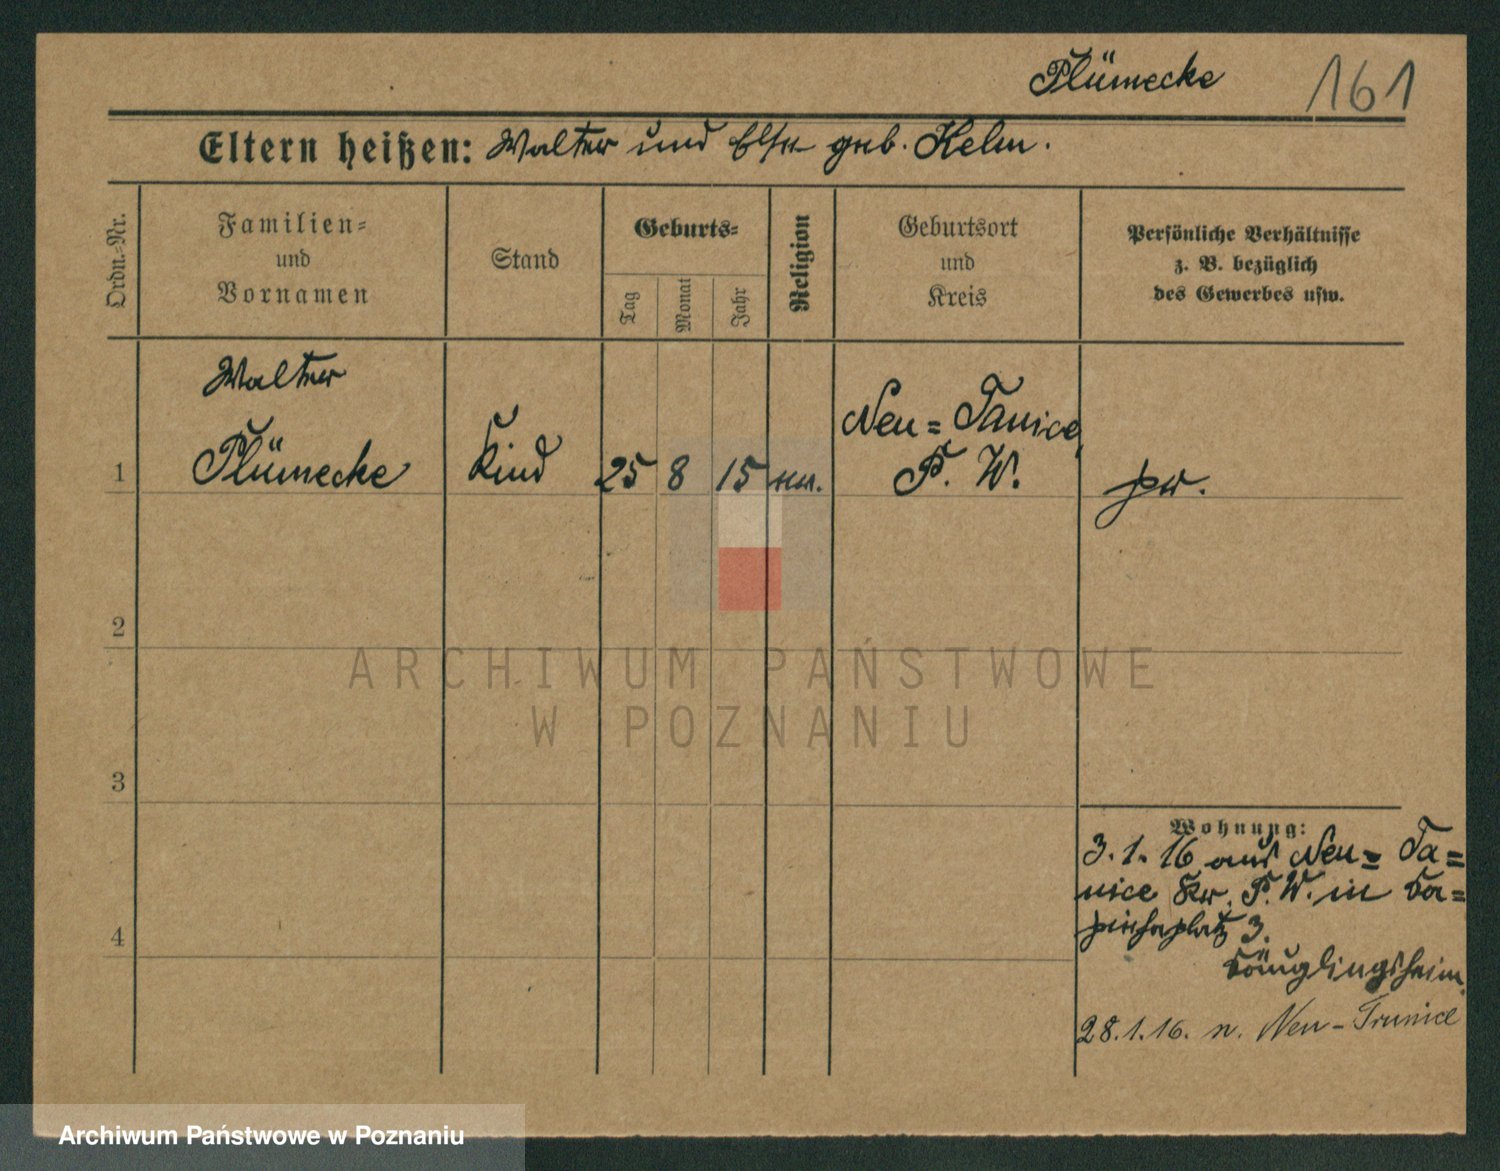 Plümecke 161
Eltern heißen: Walter und Else geb. Kelm.
Ordn.-Nr.
Familien-
und
Vornamen
Stand
Geburts-
Tag
Monat
Jahr
Religion
Geburtsort
und
Kreis
Persönliche Verhältnisse
z. B. bezüglich
des Gewerbes usw.
Walter
Neu = Tanice,
1 Plümecke Kind 25 8 15 ev. P. W. pr.
2
3
4
ARCHIWUM PAŃSTWOWE
W POZNANIU
Wohnung:
3.1.16 aus Neu = Ta=
nice Kr. P. W. in Sa=
piehaplatz 3.
Säuglingsheim.
28.1.16. n. Neu-
Archiwum Państwowe w Poznaniu